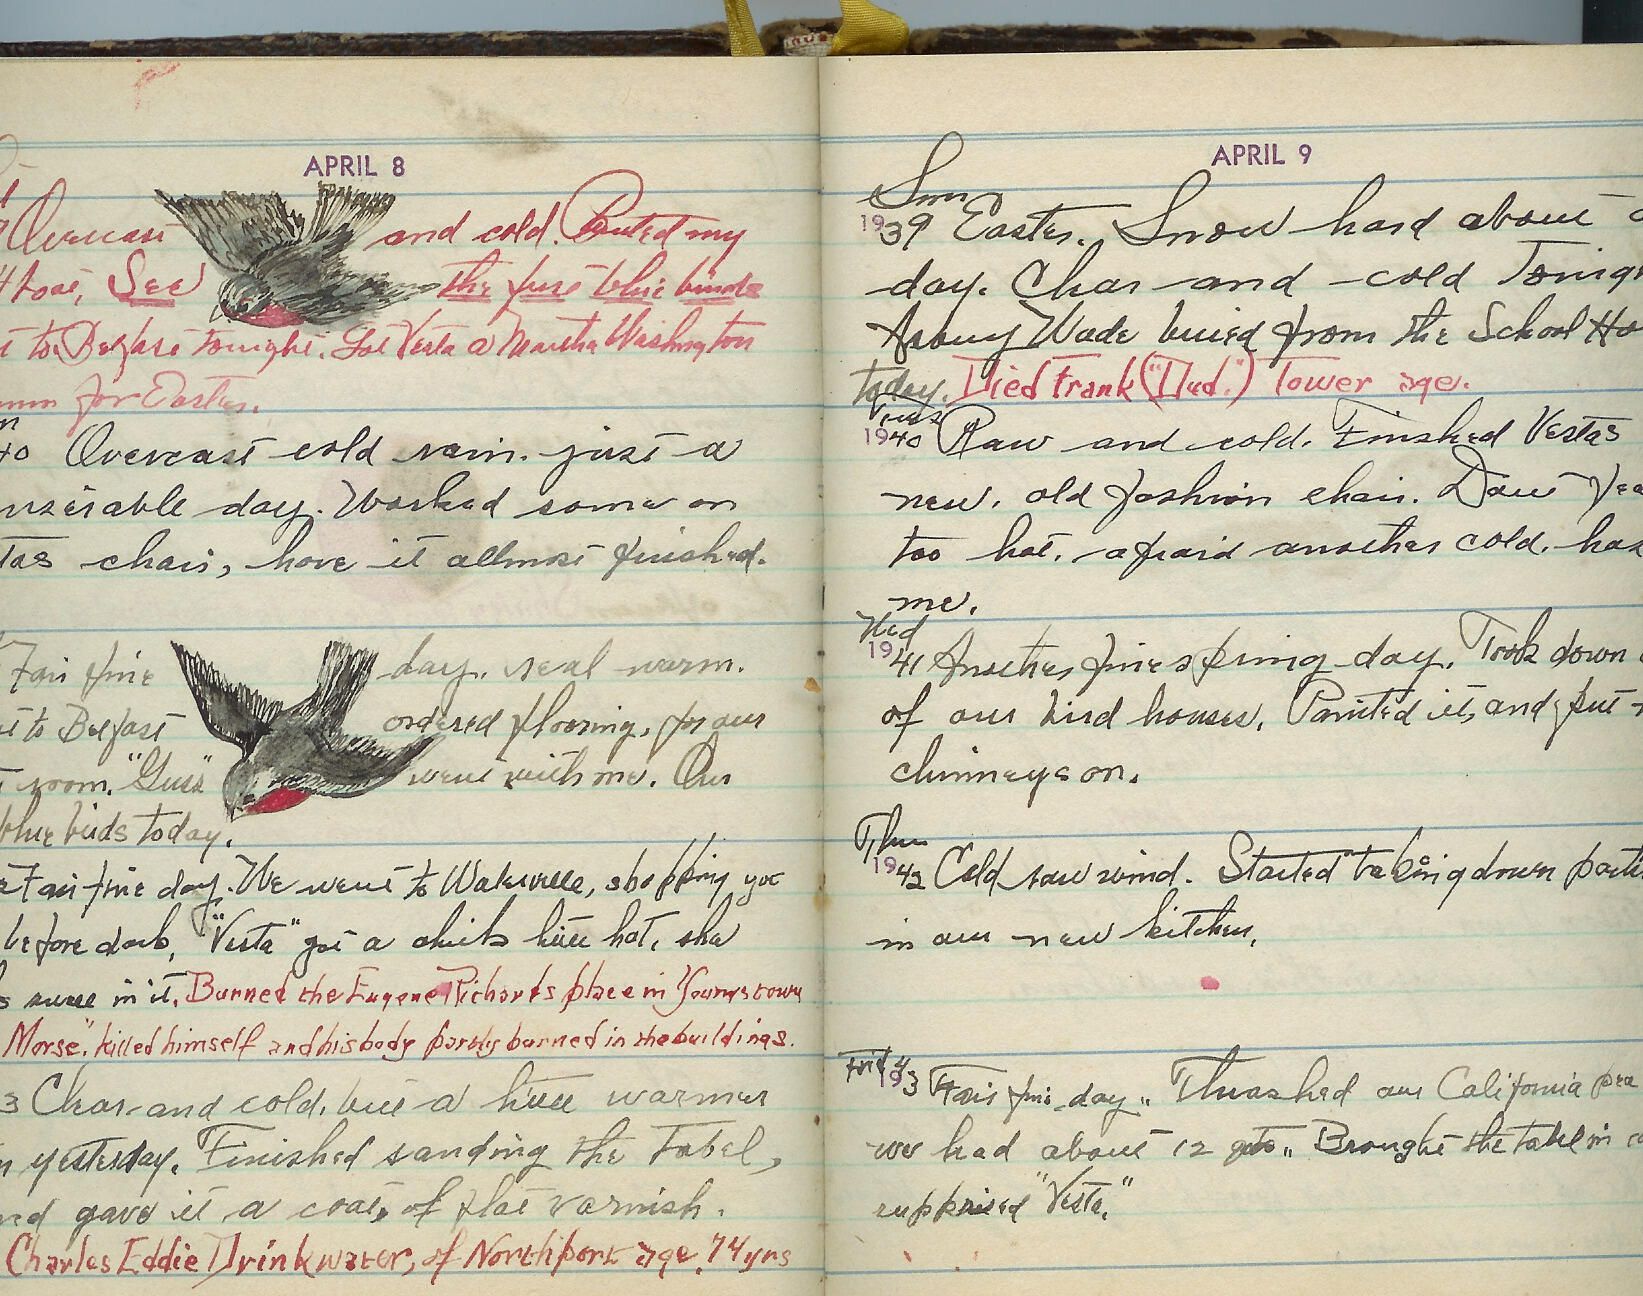 APRIL 8
Overcast and cold. Painted my
boat, See the first blue birds
to Belfast tonight. Got Vesta a Martha Washington
for Easter.
40 Overcast cold rain. just a
day. Worked some on
chair, have it allmost finished.
Fair fine day. real warm.
to Belfast ordered flooring, for our
room. "Guss" went with me. Our
blue birds today.
Fair fine day. We went to Waterville, shopping got
before dark, "Vesta" got a little hat, she
in it. Burned the Eugene Richards place in Youngstown
Morse". killed himself and his body partly burned in the buildings.
3 Clear and cold, but a little warmer
yesterday. Finished sanding the tabel,
and gave it a coat, of flat varnish.
Charles Eddie Drinkwater, of Northport age, 74 yrs
APRIL 9
Sun
1939 Easter. Snow hard about
day. Clear and cold
Wade buried from the School
today. Died Frank ("Dud.") Tower age.
Tues
1940 Raw and cold. Finished Vestas
new, old fashion chair. Dont
too hot, afraid another cold. has
me.
Wed
1941 Another fine spring day. Took down
of our bird houses, Painted it, and put
chimneys on.
Thur
1942 Cold raw wind. Started taking down
in our new kitchen,
Fri
1943 Fair fine day.. Thrashed our California pea
we had about 12 qts.. Brought the tabel in
suppriesed "Vesta".